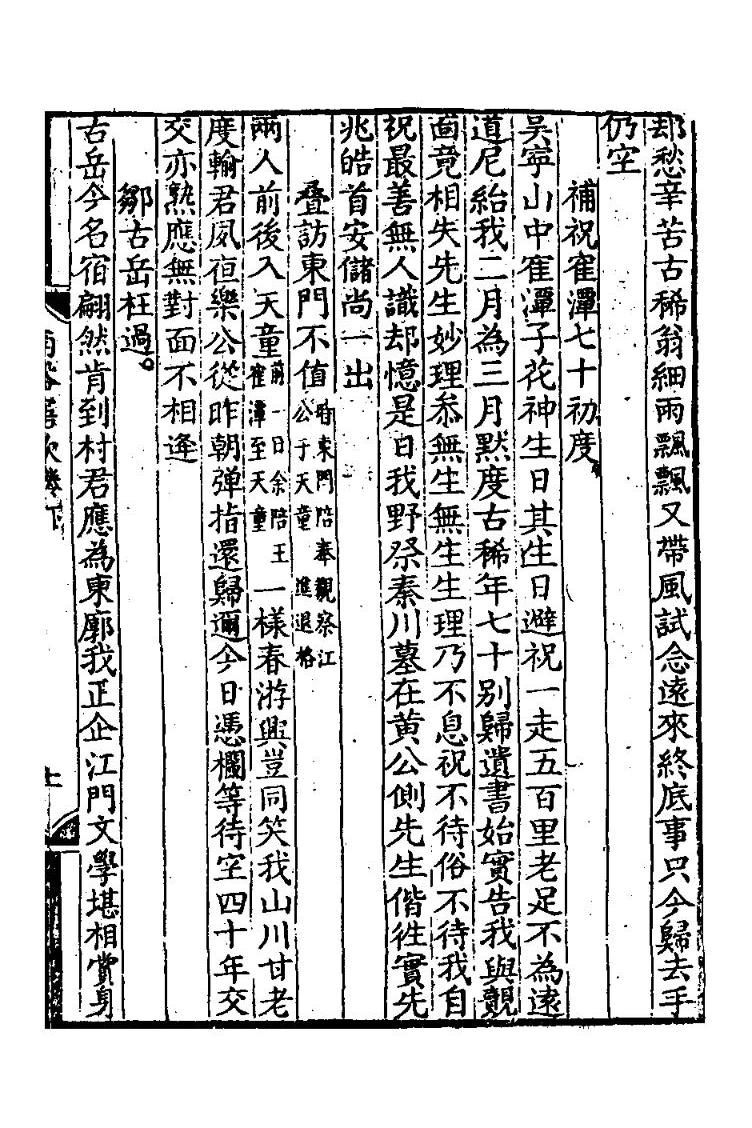 却愁辛苦古稀翁細雨飄飄又帶風試念遠來終底事只今歸去手
仍空
補祝寉潭七十初度
吳寜山中寉潭子花神生日其生日避祝一走五百里老足不為遠
道尼紿我二月為三月默度古稀年七十别歸遺書始實告我與覿
面竟相失先生妙理叅無生無生生理乃不息祝不待俗不待我自
祝最善無人識却憶是日我野祭秦川墓在黄公側先生偕徃實先
兆皓首安儲尚一出
疊訪東門不值時東門陪奉觀察江公于天童進退格
兩人前後入天童前一日余陪王寉潭至天童一樣春游興豈同笑我山川甘老
度輸君夙夜樂公從昨朝弹指還歸邇今日憑欄等待空四十年交
交亦熟應無對面不相逢
鄒古岳枉過
古岳今名宿翩然肯到村君應為東廓我正企江門文學堪相賞身
卷下